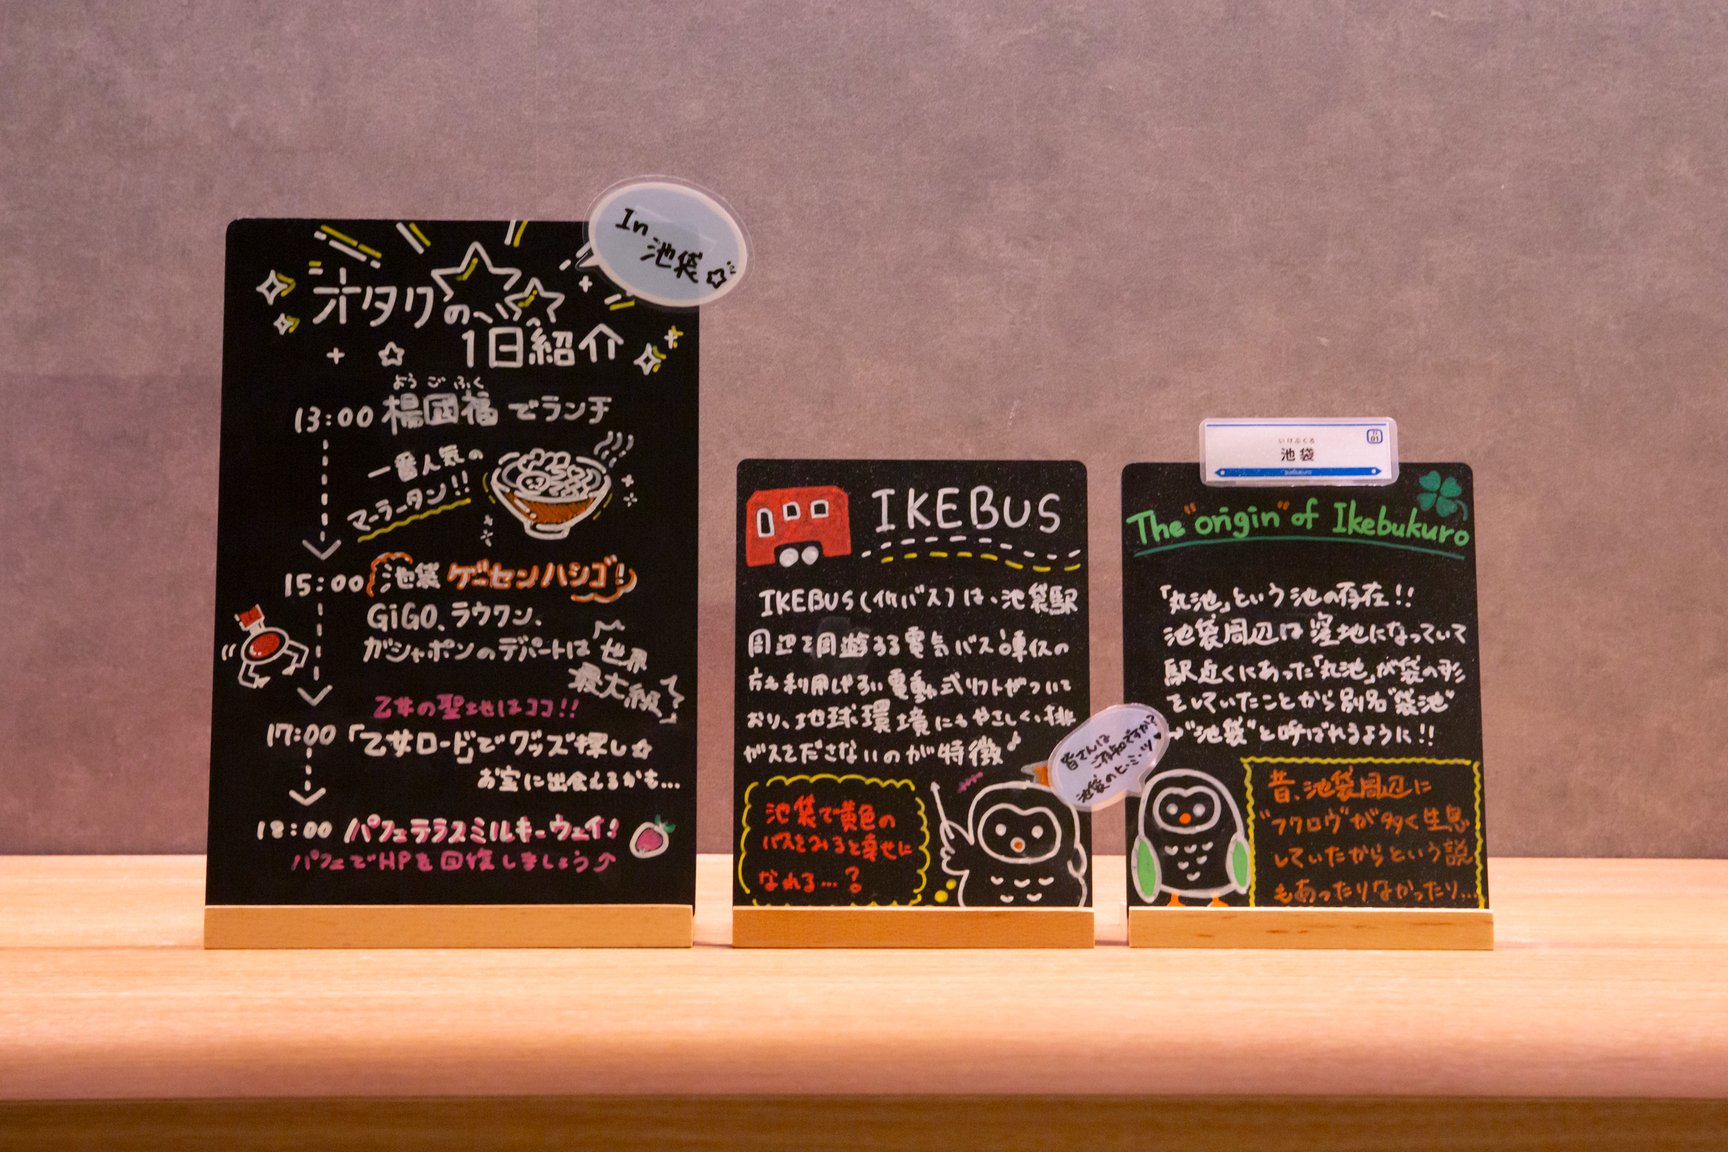 In
池袋☆
オタクの
1日紹介
ようごふく
13:00 楊国福でランチ
一番人気の
マーラータン!!
15:00 池袋ゲーセンハシゴ!
GiGO、ラウワン、
ガシャポンのデパートは世界
最大級
乙女の聖地はココ!!
17:00 「乙女ロード」でグッズ探し☆
お宝に出会えるかも...
18:00 パフェテラスミルキーウェイ!
パフェでHPを回復しましょう↗
IKEBUS
IKEBUS(イケバス)は、池袋駅
周辺を周遊する電気バス。車イスの
方も利用しやすい電動式リフトがついて
おり、地球環境にもやさしく、排
ガスをださないのが特徴♪
池袋で黄色の
バスをみると幸せに
なれる...?
皆さんは
ご存知ですか?
池袋のヒ・ミ・ツ♥
いけぶくろ
池袋
Ikebukuro
01
The "origin" of Ikebukuro
「丸池」という池の存在!!
池袋周辺は窪地になっていて
駅近くにあった「丸池」が袋の形
をしていたことから別名"袋池"
"池袋"と呼ばれるように!!
昔、池袋周辺に
"フクロウ"が多く生息
していたからという説
もあったりなかったり...